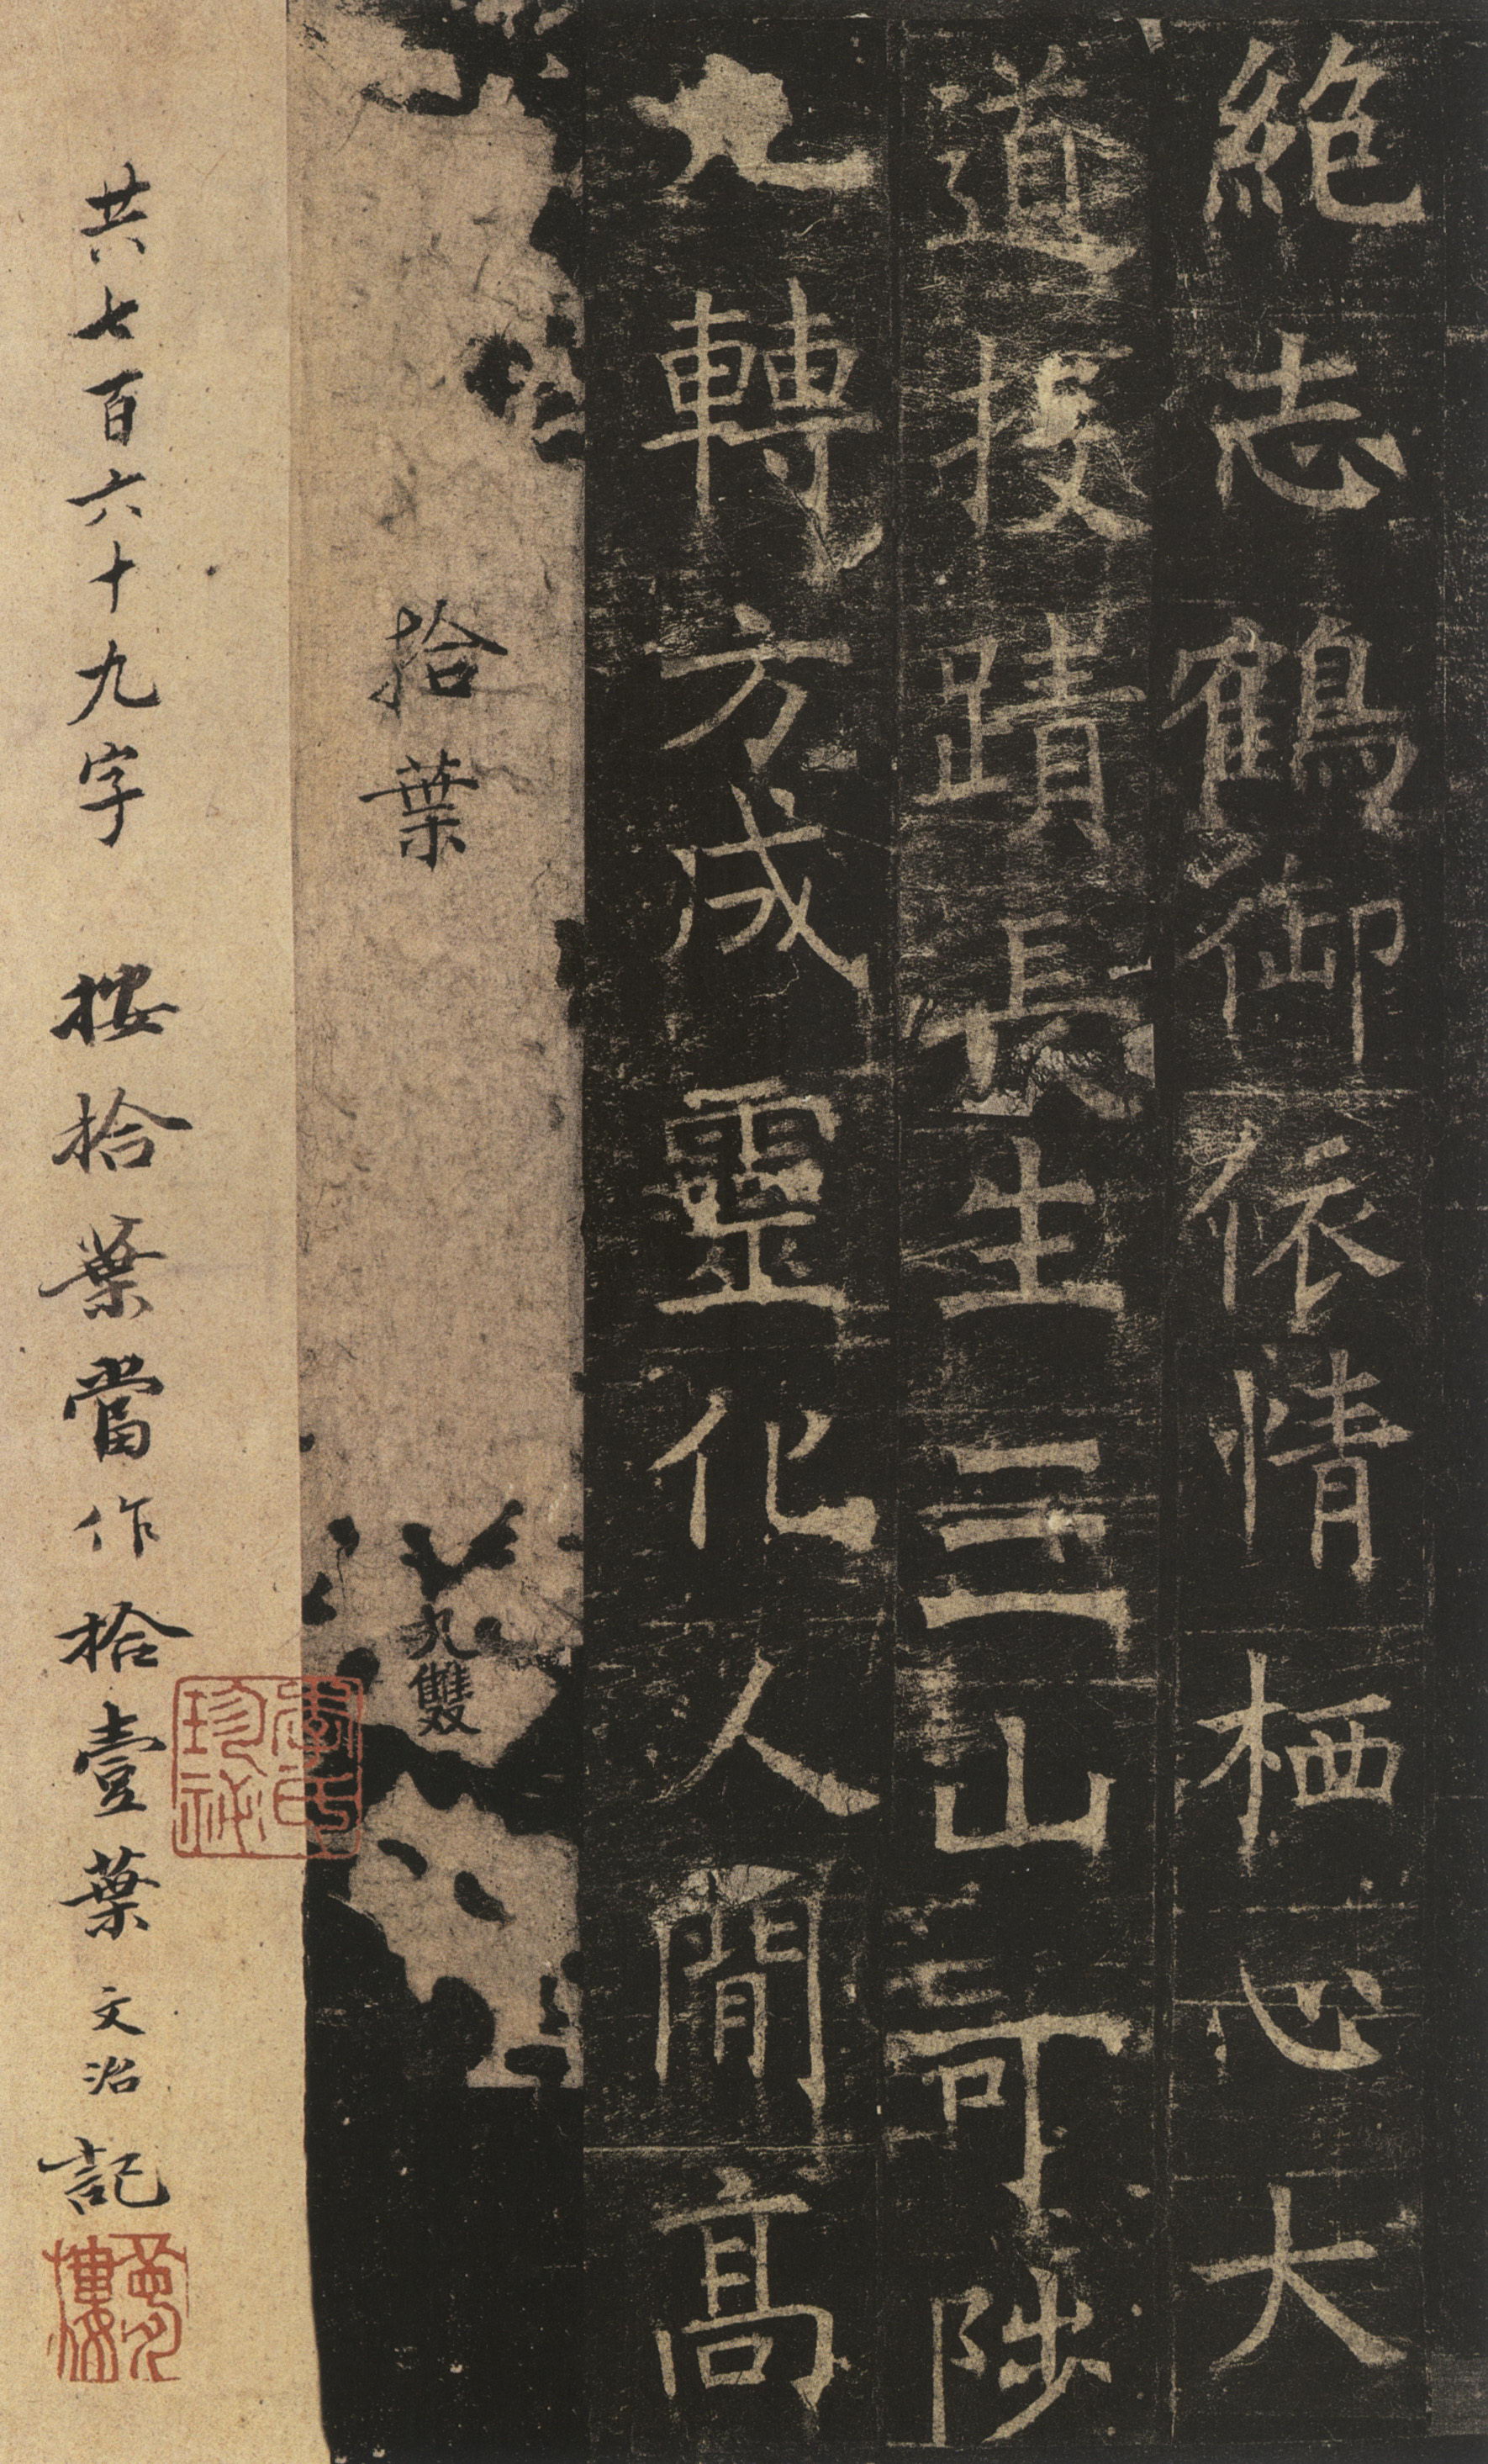 絶志鶴御依情栖心大
道投蹟長生三山可陟
九轉方成靈化人閒高
拾葉
九雙
李氏珍祕
共七百六十九字 按拾葉當作拾壹葉 文治記
夢樓